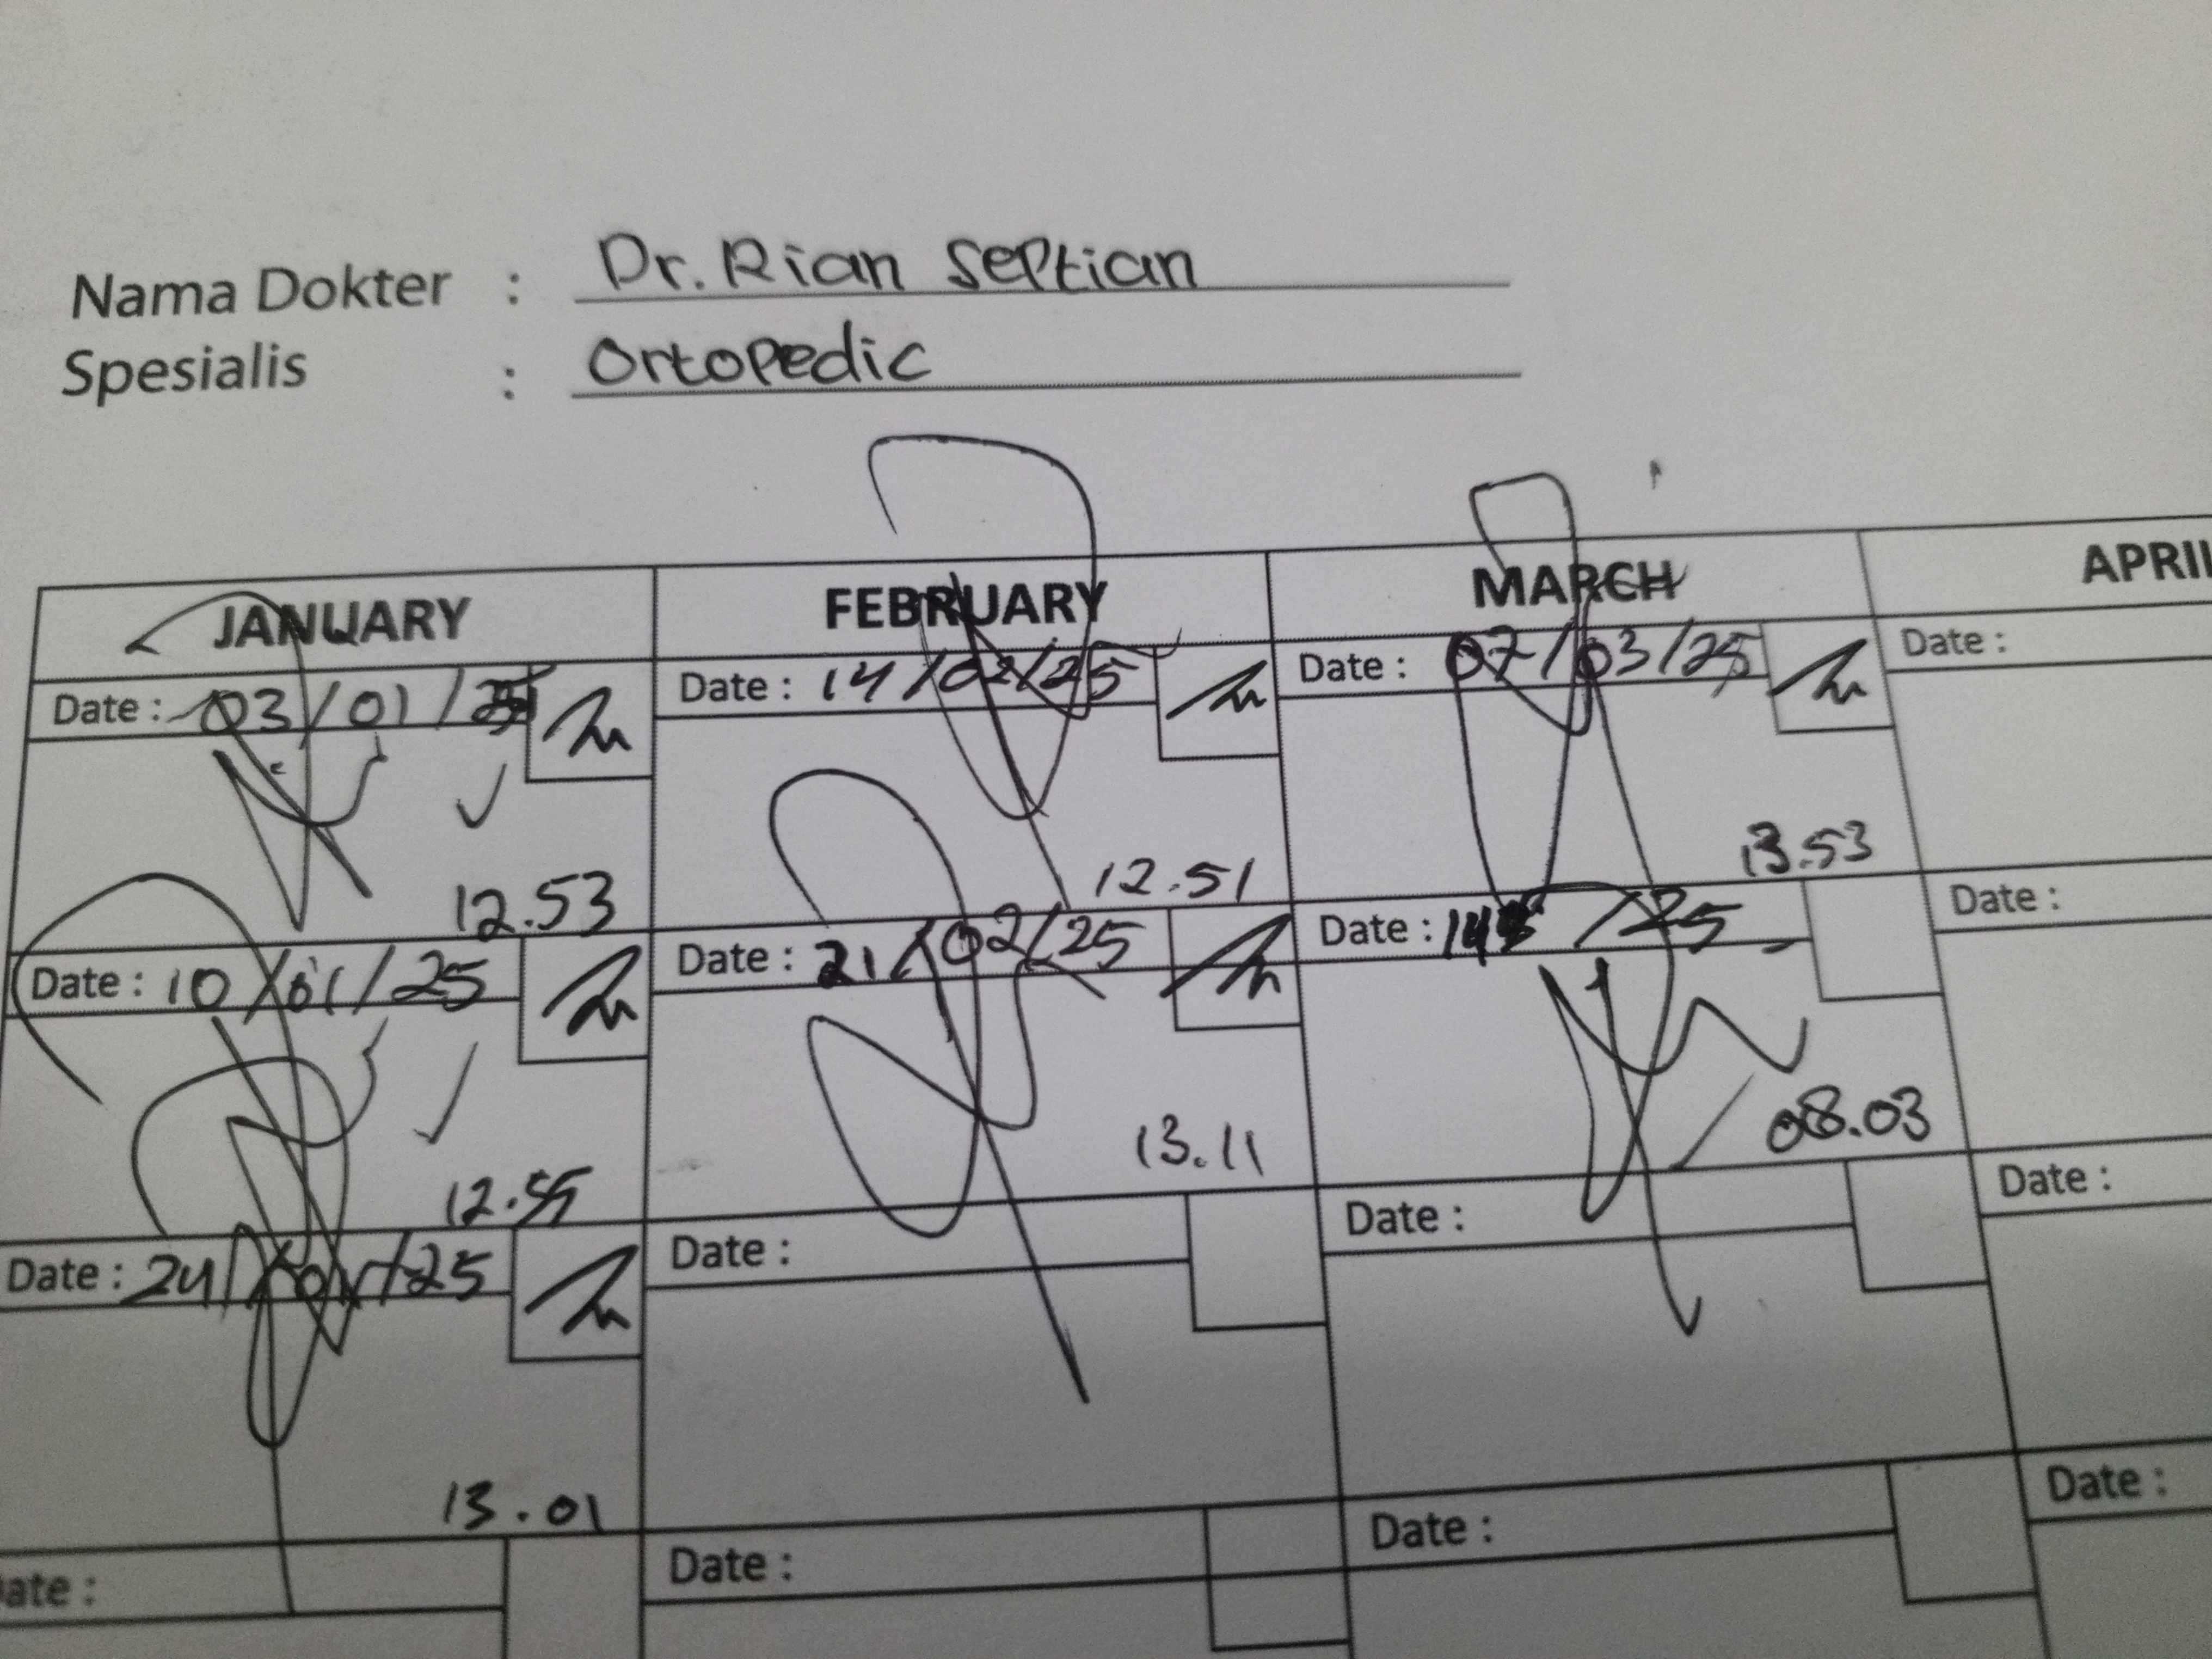 Nama Dokter : Dr. Rian Septian
Spesialis : Ortopedic
JANUARY FEBRUARY MARCH APRIL
Date : 03/01/25 Date : 14/02/25 Date : 07/03/25 Date :
12.53 12.51 13.53
Date : 10/01/25 Date : 21/02/25 Date : 14 /25 Date :
12.55 13.11 08.03
Date : 24/01/25 Date : Date : Date :
13.01
Date : Date : Date : Date :